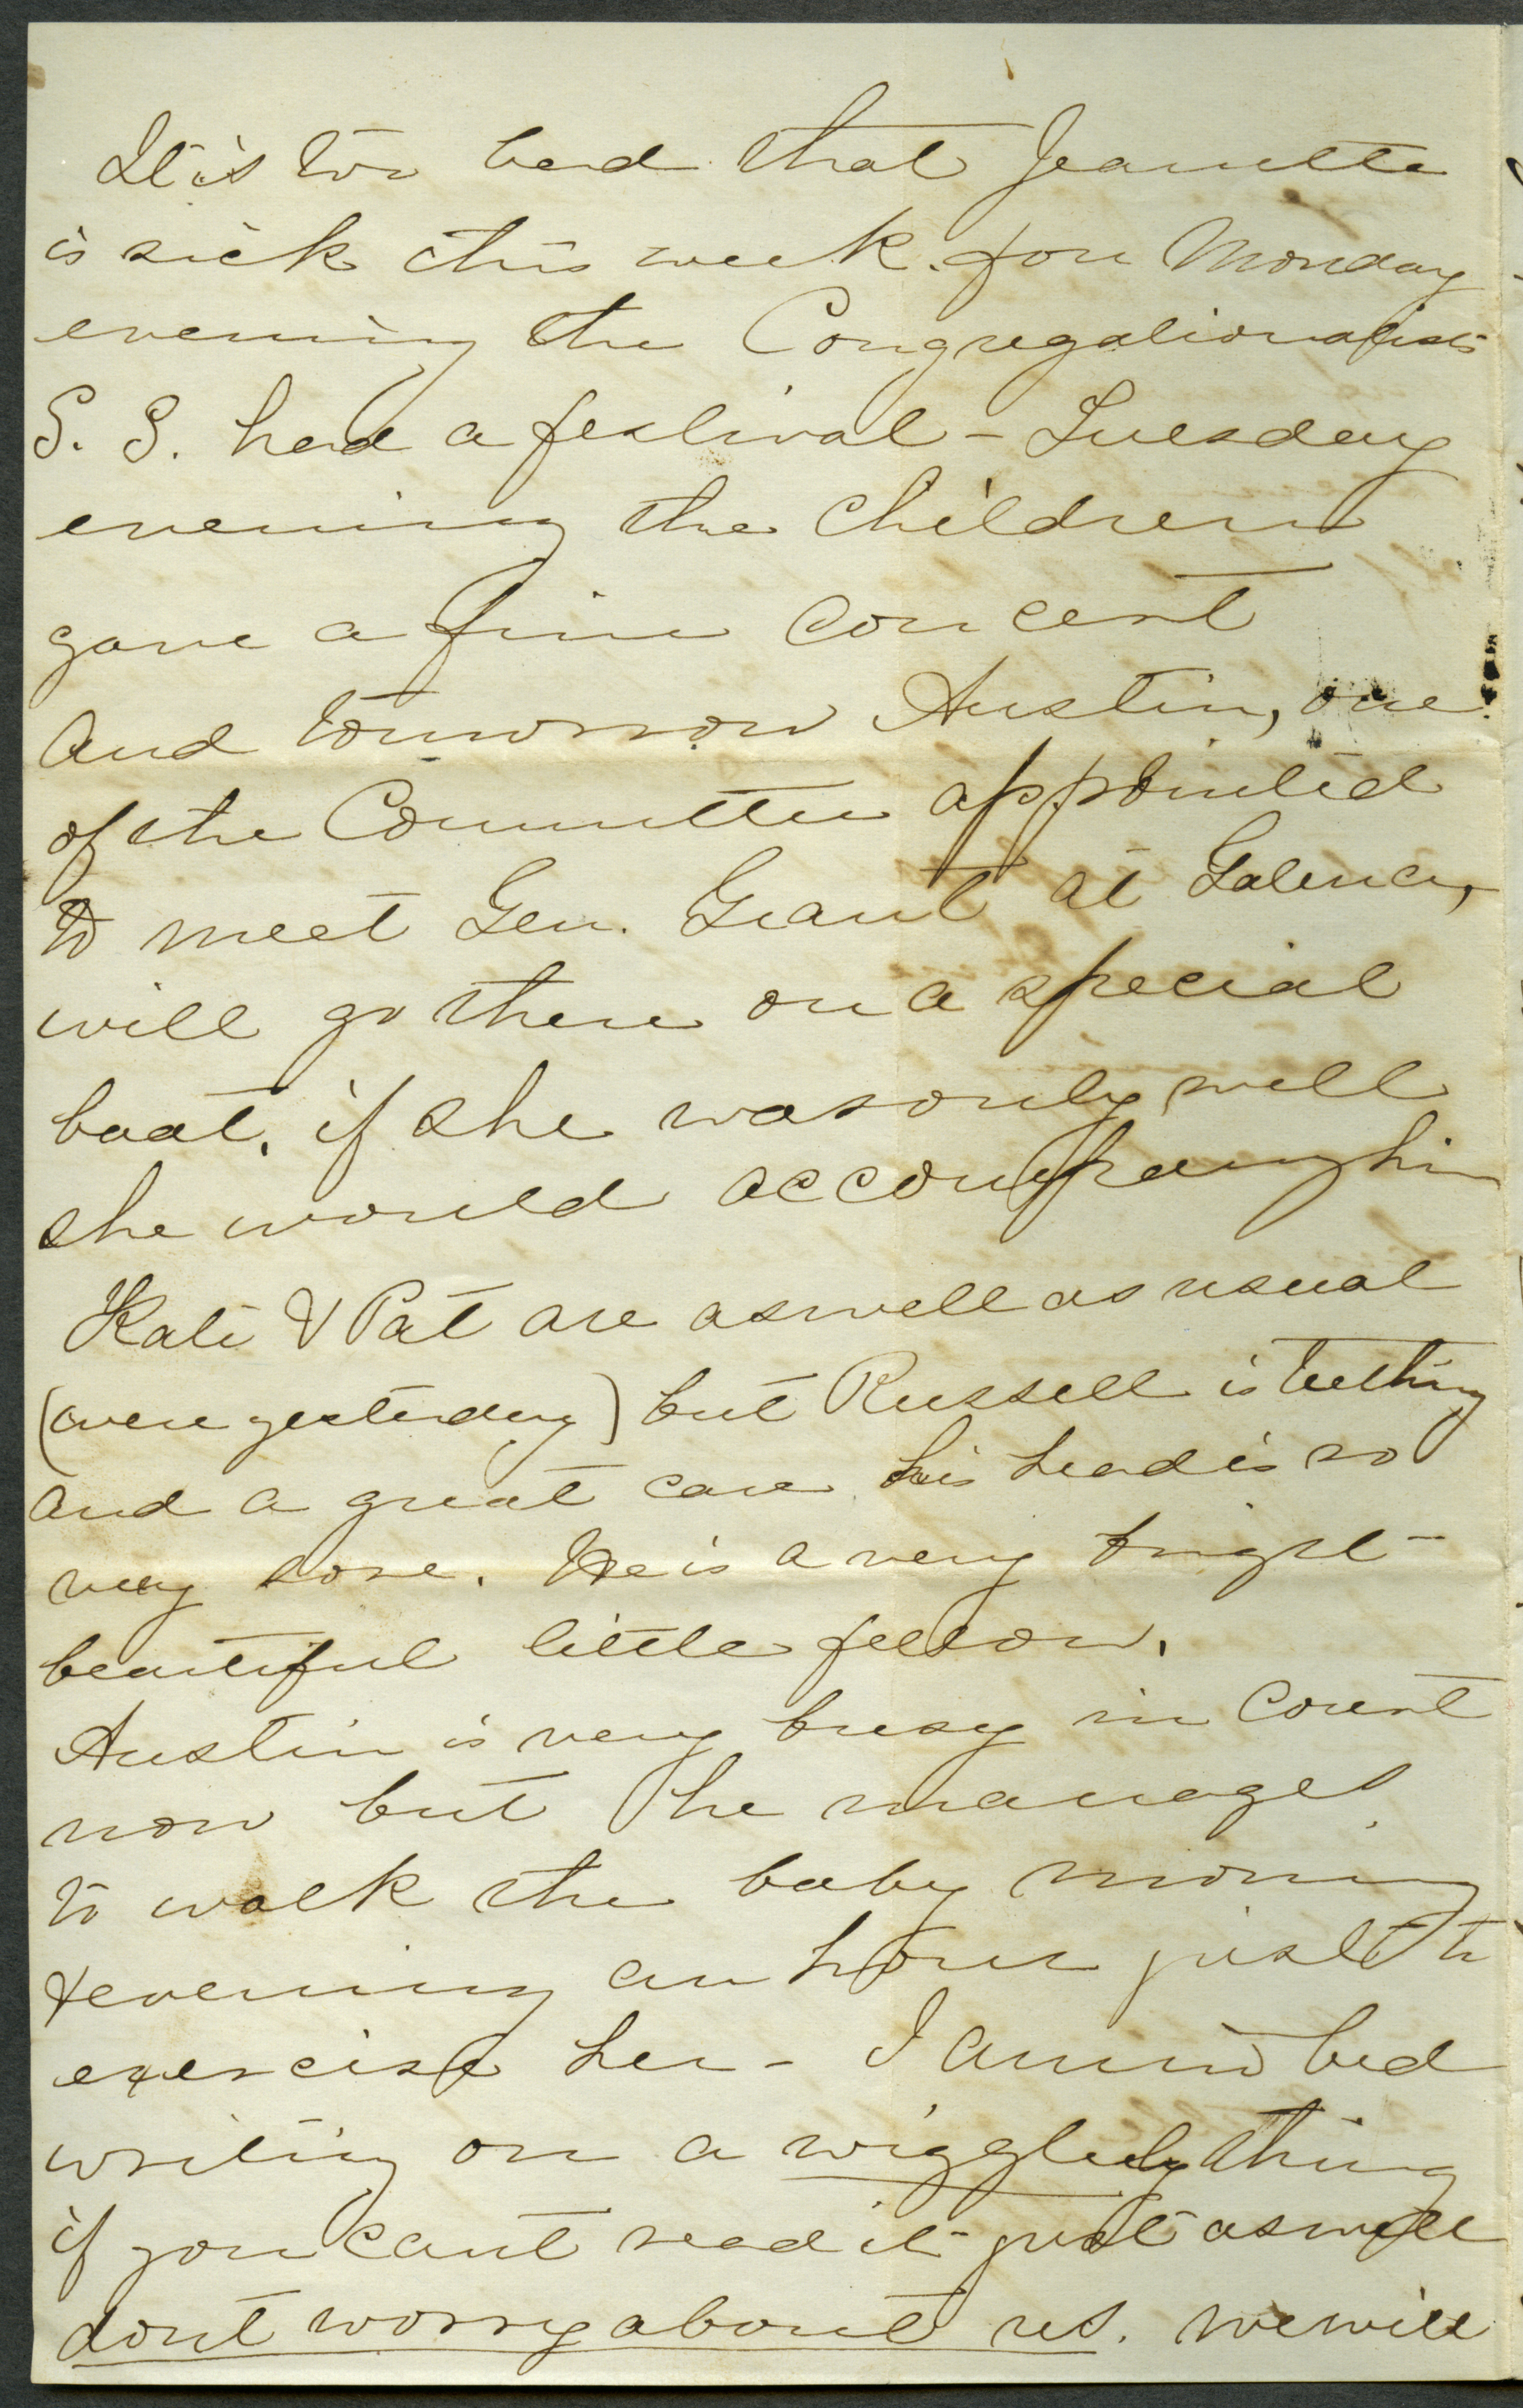 It is too bad that Jeanette
is sick this week. for Monday
evening the Congregationalists
S. S. had a festival - Tuesday
evening the children
gave a fine concert
and tomorrow Austin, one
of the Committee appointed
to meet Gen. Grant at Galena,
will go there on a special
boat. if she was only well
she would accompany him
Kate & Pat are as well as usual
(were yesterday) but Russell is teething
and a great care his head is so
very sore. He is a very bright -
beautiful little fellow.
Austin is very busy in Court
now but he manages
to walk the baby morning
& evening an hour just to
exercise her - I am in bed
writing on a wiggledy thing
if you cant read it - just as well
dont worry about us. we will